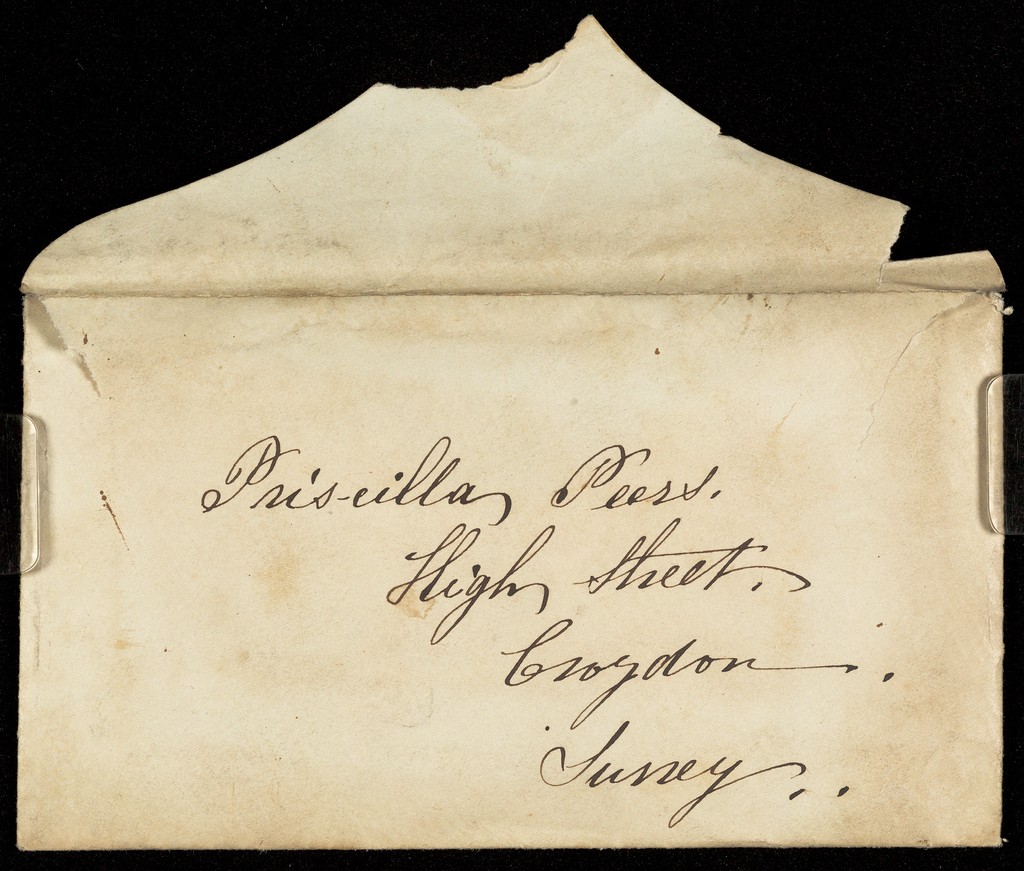 Priscilla Peers.
High Street.
Croydon.
Surrey..